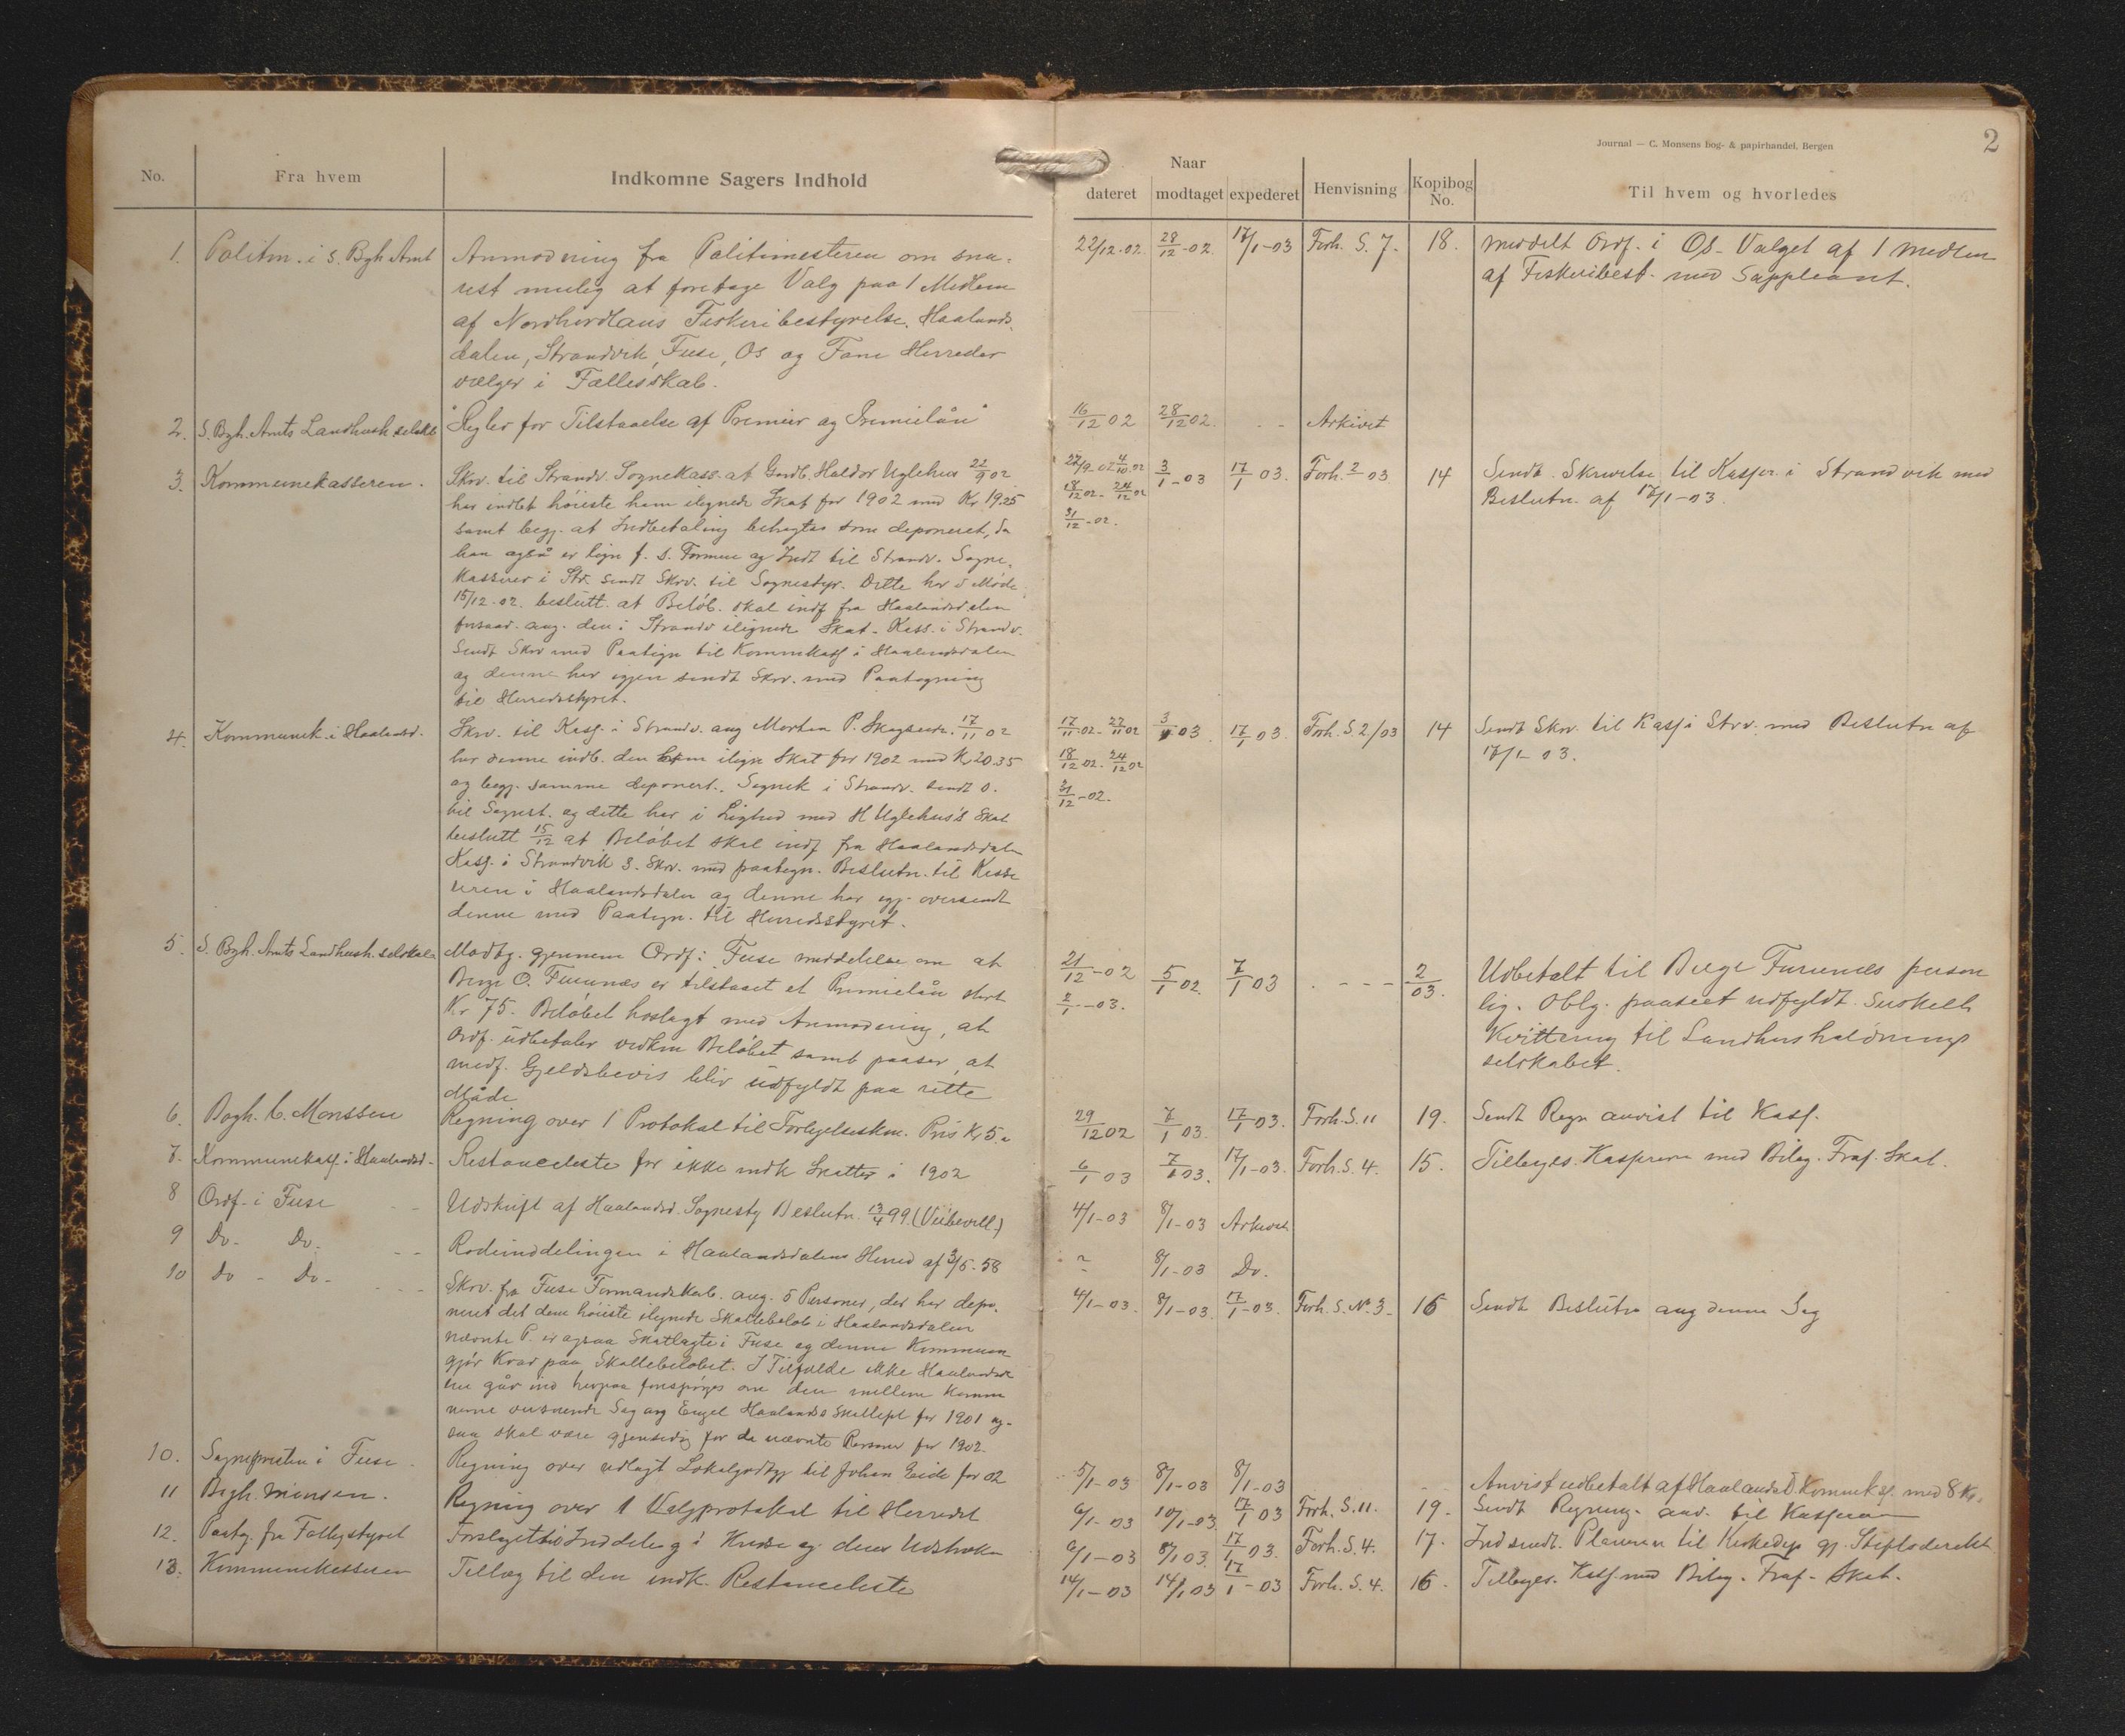 Journal — C. Monsens bog- & papirhandel, Bergen
2
No.
Fra hvem
Indkomne Sagers Indhold
Naar
dateret
modtaget
expederet
Henvisning
Kopibog
No.
Til hvem og hvorledes
1. Politm. i S. Bgh Amt
Anmodning fra Politimesteren om sna-
rest mulig at foretage Valg paa 1 Medlem
af Nordhordlans Fiskeribestyrelse. Haalands-
dalen, Strandvik, Fuse, Os og Fane Herreder
vælger i Fællesskab.
22/12-02 28/12-02 17/1-03 Forh. S. 7. 18.
meddelt Ordf. i Os- Valget af 1 medlem
af Fiskeribest. med Suppleant.
2. S. Bgh. Amts Landhush. selskb
"Regler for Tilstaaelse af Premier og Premielån"
16/12 02 28/12 02 - - Arkivet
3. Kommunekasseren.
Skrv. til Strandv. Sognekass. at Gmdb. Haldor Uglehus 22/9 02
har indbt høieste ham ilignede Skat for 1902 med Kr. 19.25
samt begj. at Indbetaling betragtes som deponeret, da
han også er lign f. s. Formue og Indt til Strandv. Sogne-
kasserer i Str. sendt Skrv. til Sognestyr. Dette har i Møde
15/12-02. beslutt. at Beløb. skal indf fra Haalandsdalen
ang. den i Strandv ilignede Skat. Kass. i Strandv.
Sendt Skrv med Paategn til Kommekass i Haalandsdalen
og denne har igjen sendt Skrv. med Paategning
til Herredsstyret.
22/9-02 4/10 02
18/12 02- 24/12 02
31/12-02.
3/1-03 17/1 03. Forh. 2/03 14
Sendt Skrivelse til Kasser. i Strandvik med
Beslutn. af 17/1-03.
4. Kommunek. i Haalandsd.
Skrv. til Kasf. i Strandv. ang Morten P. 17/11 02
har denne indb. den ham ilign Skat for 1902 med K 20.35
og begj. samme deponert. Sognek i Strandv. sendt o.
til Sognest. og dette har i Lighed med H Uglehus's Skat
beslutt 15/12 at Beløbet skal indf fra Haalandsdalen
Kasf. i Strandvik s. Skrv. med paategn. Beslutn. til Kasse
reren i Haalandsdalen og denne har igj. oversendt
denne med Paategn. til Herredsstyret.
17/11-02. 22/11 02
18/12 02. 24/12 02
31/12-02.
3/1 03 17/1 03. Forh. S. 2/03 14
Sendt Skrv. til Kasf i Strv. med Beslutn af
17/1- 03.
5. S. Bgh. Amts Landhush. selskab
Modtg. gjennem Ordf. i Fuse meddelelse om at
Berge O. Furunæs er tilstaaet et Premielån stort
Kr 75. Beløbet hoslagt med Anmodning, at
Ordf. udbetaler vedkm Beløbet samt paaser, at
medf. Gjeldsbevis bliv udfyldt paa rette
Måde
21/12-02
2/1-03.
5/1 02. 7/1 03 - - - - 2/03.
Udbetalt til Berge Furunæs person
lig. Oblg. paaseet udfyldt.
Kvittering til Landhusholdnings
selskabet.
6. Bogh. C. Monssen
Regning over 1 Protokol til Forligelseskm. Pris Kr 5.-
29/12 02 7/1 03. 17/1 03. Forh. S. 11 19.
Sendt Regn anvist til Kasf.
7. Kommunekasf. i Haalandsd.
Restanceliste for ikke indk Skatter i 1902
6/1 03 7/1 03. 17/1-03. Forh. S. 4. 15.
Tilbages. Kasseren med Bilag. Fraf. Skat.
8 Ordf. i Fuse
Udskrift af Haalandsd. Sognesty Beslutn. 13/4 99. (Veibevill.)
4/1-03 8/1-03 Arkivet
9 Do. Do.
Rodeinddelingen i Haalandsdalens Herred af 3/6-58
? 8/1-03 Do.
10 do - Do -
Skrv. fra Fuse Formandskab. ang. 5 Personer, der har depo-
neret det dem høieste ilignede Skattebeløb i Haalandsdalen
nævnte P. er ogsaa Skatlagte i Fuse og denne Kommune
gjör Krav paa Skattebeløbet. I Tilfælde ikke Haalandsda
en går ind herpaa forespørges om den mellem Kommu
nerne verserende Sag ang Engel Haalands Skattepl for 1901 og-
saa skal være gjensidig for de nævnte Personer for 1902.
4/1-03. 8/1-03. 17/1-03. Forh. S. No. 3- 16
Sendt Beslutn ang denne Sag
10. Sognepresten i Fuse.
Regning over udlagt Lokalgodtgj til Johan Eide for 02
5/1-03 8/1-03 8/1-03 - -
Anvist udbetalt af Haalandsd. Kommekasf. med 8 Kr.
11 Bogh. Monsen.
Regning over 1 Valgprotokol til Herredet
6/1-03 10/1-03 17/1 03 Forh. S. 11. 19.
Sendt Regning. anv. til Kasseren
12. Paateg. fra Fattigstyret
Forslag til Inddeling i Kredse og deres Udstrækn
6/1-03 8/1 03. 17/1 03. Forh. S. 4. 17.
Indsendt. Planen til Kirkedep gj. Stiftsdirekt.
13. Kommunekasseren
Tillæg til den indk. Restanceliste
14/1-03 14/1 03 17/1-03 Forh. S. 4. 16.
Tilbages. Kasf. med Bilag. Fraf. Skat.